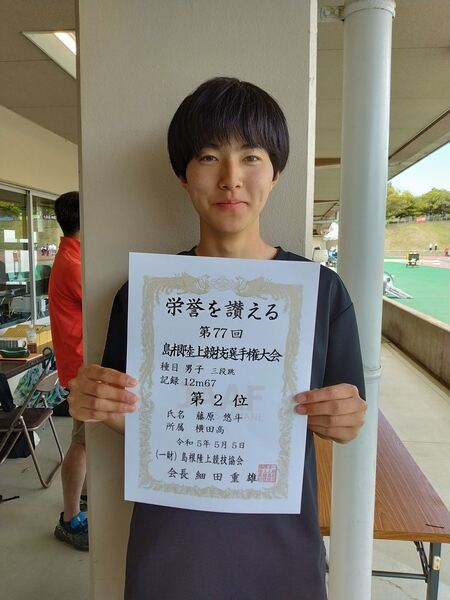 栄誉を讃える
第77回
島根陸上競技選手権大会
種目 男子 三段跳
記録 12m67
第2位
氏名 藤原 悠斗
所属 横田高
令和5年5月5日
(一財)島根陸上競技協会
会長 細田重雄